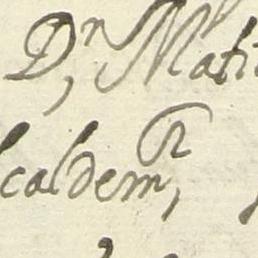 Dn, Mati
caldem,r